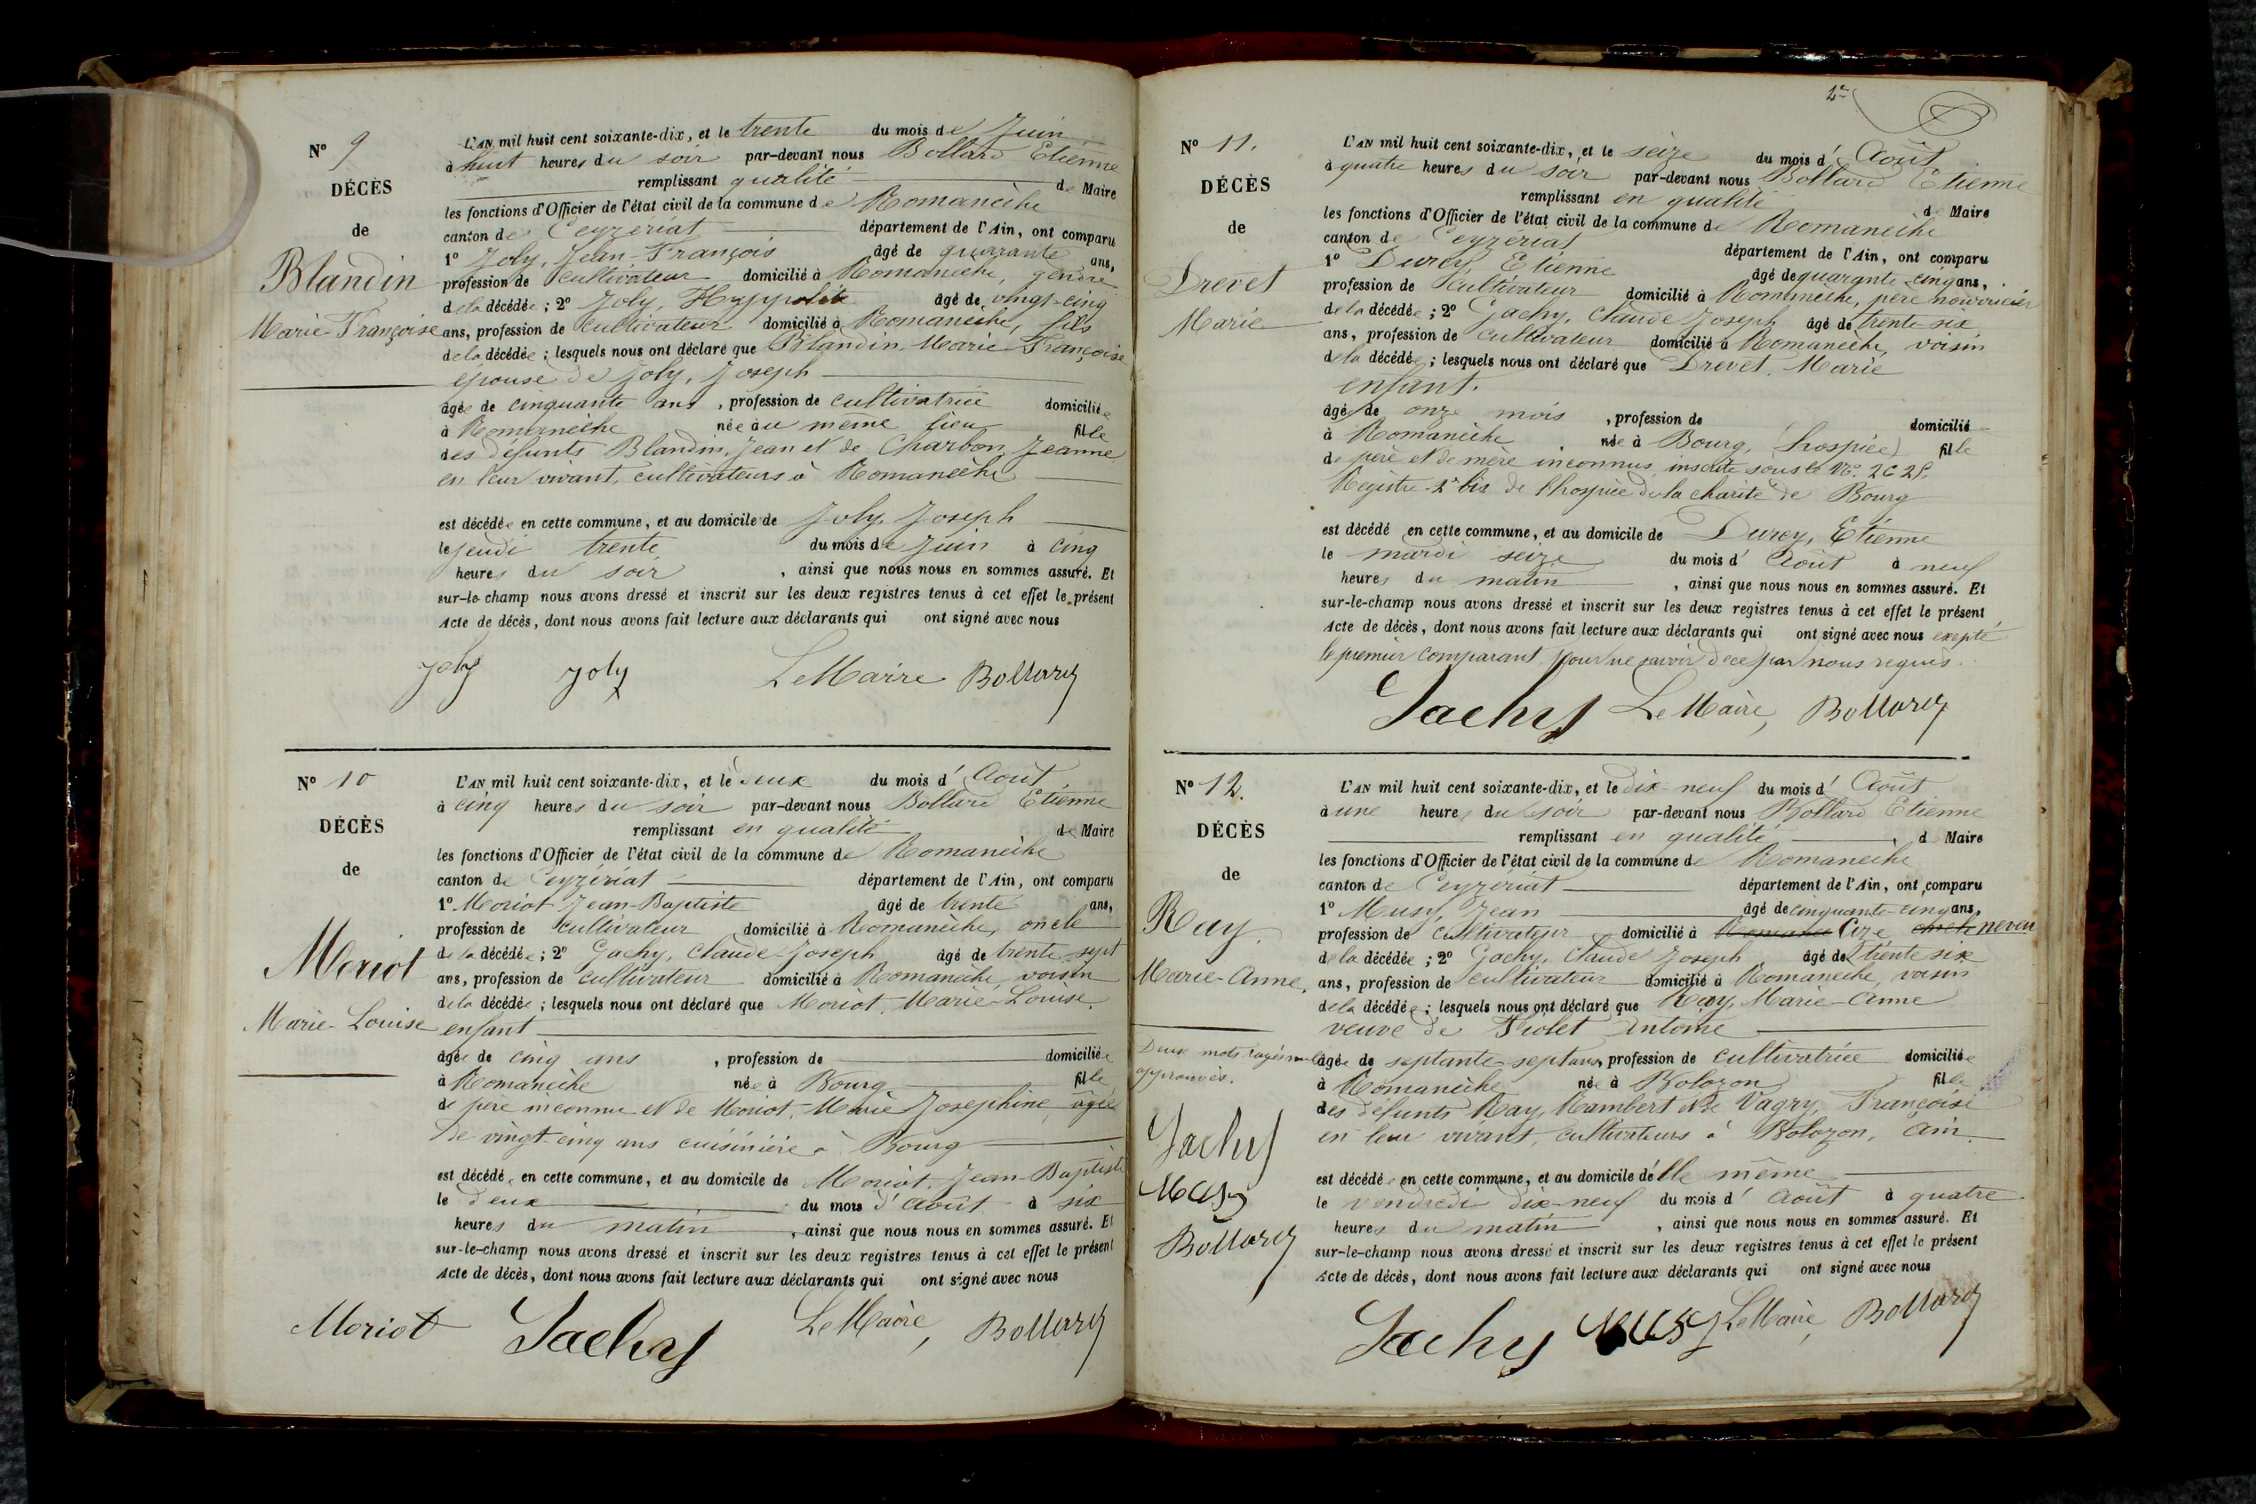 N° 9
DÉCÈS
de
Blandin
Marie-Françoise
L'AN mil huit cent soixante-dix, et le trente du mois de Juin
à huit heures du soir par-devant nous Bollard Etienne
remplissant qualité de Maire
les fonctions d'Officier de l'état civil de la commune de Romanèche
canton de Ceyzériat département de l'Ain, ont comparu
1° Joly, Jean-François âgé de quarante ans,
profession de cultivateur domicilié à Romanèche, gendre
de la décédée; 2° Joly, Hyppolite âgé de vingt-cinq
ans, profession de cultivateur domicilié à Romanèche, fils
de la décédée; lesquels nous ont déclaré que Blandin Marie-Françoise
épouse de Joly, Joseph
âgée de cinquante ans, profession de cultivatrice domiciliée
à Romanèche née au même lieu fille
des défunts Blandin, Jean et de Charbon, Jeanne
en leur vivant, cultivateurs à Romanèche
est décédée en cette commune, et au domicile de Joly, Joseph
le jeudi trente du mois de Juin à cinq
heures du soir, ainsi que nous nous en sommes assuré. Et
sur-le-champ nous avons dressé et inscrit sur les deux registres tenus à cet effet le présent
Acte de décès, dont nous avons fait lecture aux déclarants qui ont signé avec nous
Joly Joly Le Maire Bollard
N° 10
DÉCÈS
de
Moriot
Marie-Louise
L'AN mil huit cent soixante-dix, et le deux du mois d'Août
à cinq heures du soir par-devant nous Bollard Etienne
remplissant en qualité de Maire
les fonctions d'Officier de l'état civil de la commune de Romanèche
canton de Ceyzériat département de l'Ain, ont comparu
1° Moriot Jean-Baptiste âgé de trente ans,
profession de cultivateur domicilié à Romanèche, oncle
de la décédée; 2° Gachy, Claude-Joseph âgé de trente-sept
ans, profession de cultivateur domicilié à Romanèche, voisin
de la décédée; lesquels nous ont déclaré que Moriot, Marie-Louise
enfant
âgée de cinq ans, profession de domiciliée
à Romanèche née à Bourg fille
de père inconnu et de Moriot, Marie Josephine, âgée
de vingt-cinq ans cuisinière à Bourg
est décédée en cette commune, et au domicile de Moriot, Jean-Baptiste
le deux du mois d'août à six
heures du matin, ainsi que nous nous en sommes assuré. Et
sur-le-champ nous avons dressé et inscrit sur les deux registres tenus à cet effet le présent
Acte de décès, dont nous avons fait lecture aux déclarants qui ont signé avec nous
Moriot Gachy Le Maire, Bollard
N° 11.
DÉCÈS
de
Drevet
Marie
L'AN mil huit cent soixante-dix, et le seize du mois d'Août
à quatre heures du soir par-devant nous Bollard Etienne
remplissant en qualité de Maire
les fonctions d'Officier de l'état civil de la commune de Romanèche
canton de Ceyzériat département de l'Ain, ont comparu
1° Durey, Etienne âgé de quarante-cinq ans,
profession de cultivateur domicilié à Romanèche, père nourricier
de la décédée; 2° Gachy, Claude Joseph âgé de trente six
ans, profession de cultivateur domicilié à Romanèche, voisin
de la décédée; lesquels nous ont déclaré que Drevet, Marie
enfant.
âgée de onze mois, profession de domicilié
à Romanèche née à Bourg, (hospice) fille
de père et de mère inconnus, inscrite sous le No.
Registre 2° bis de l'hospice de la charité de Bourg
est décédé en cette commune, et au domicile de Durey, Etienne
le mardi seize du mois d'Août à neuf
heures du matin, ainsi que nous nous en sommes assuré. Et
sur-le-champ nous avons dressé et inscrit sur les deux registres tenus à cet effet le présent
Acte de décès, dont nous avons fait lecture aux déclarants qui ont signé avec nous exepté
le premier comparant pour ne savoir de ce par nous requis.
Gachy Le Maire, Bollard
N° 12.
DÉCÈS
de
Ray
Marie-Anne.
Deux mots rayés nuls
approuvés.
Gachy
Musy
Bollard
L'AN mil huit cent soixante-dix, et le dix-neuf du mois d'Août
à une heure du soir par-devant nous Bollard Etienne
remplissant en qualité d Maire
les fonctions d'Officier de l'état civil de la commune de Romanèche
canton de Ceyzériat département de l'Ain, ont comparu
1° Musy, Jean âgé de cinquante-cinq ans,
profession de cultivateur domicilié à Cize neveu
de la décédée; 2° Gachy, Claude Joseph âgé de trente six
ans, profession de cultivateur domicilié à Romanèche, voisin
de la décédée; lesquels nous ont déclaré que Ray, Marie-Anne
veuve de Antoine
âgée de septante-sept ans, profession de cultivatrice domiciliée
à Romanèche née à Bolozon fille
des défunts Ray, Rambert et de Vagry, Françoise
en leur vivant, cultivateurs à Bolozon, Ain.
est décédée en cette commune, et au domicile d'elle même
le vendredi dix-neuf du mois d'Août à quatre
heures du matin, ainsi que nous nous en sommes assuré. Et
sur-le-champ nous avons dressé et inscrit sur les deux registres tenus à cet effet le présent
Acte de décès, dont nous avons fait lecture aux déclarants qui ont signé avec nous
Gachy Musy Le Maire, Bollard